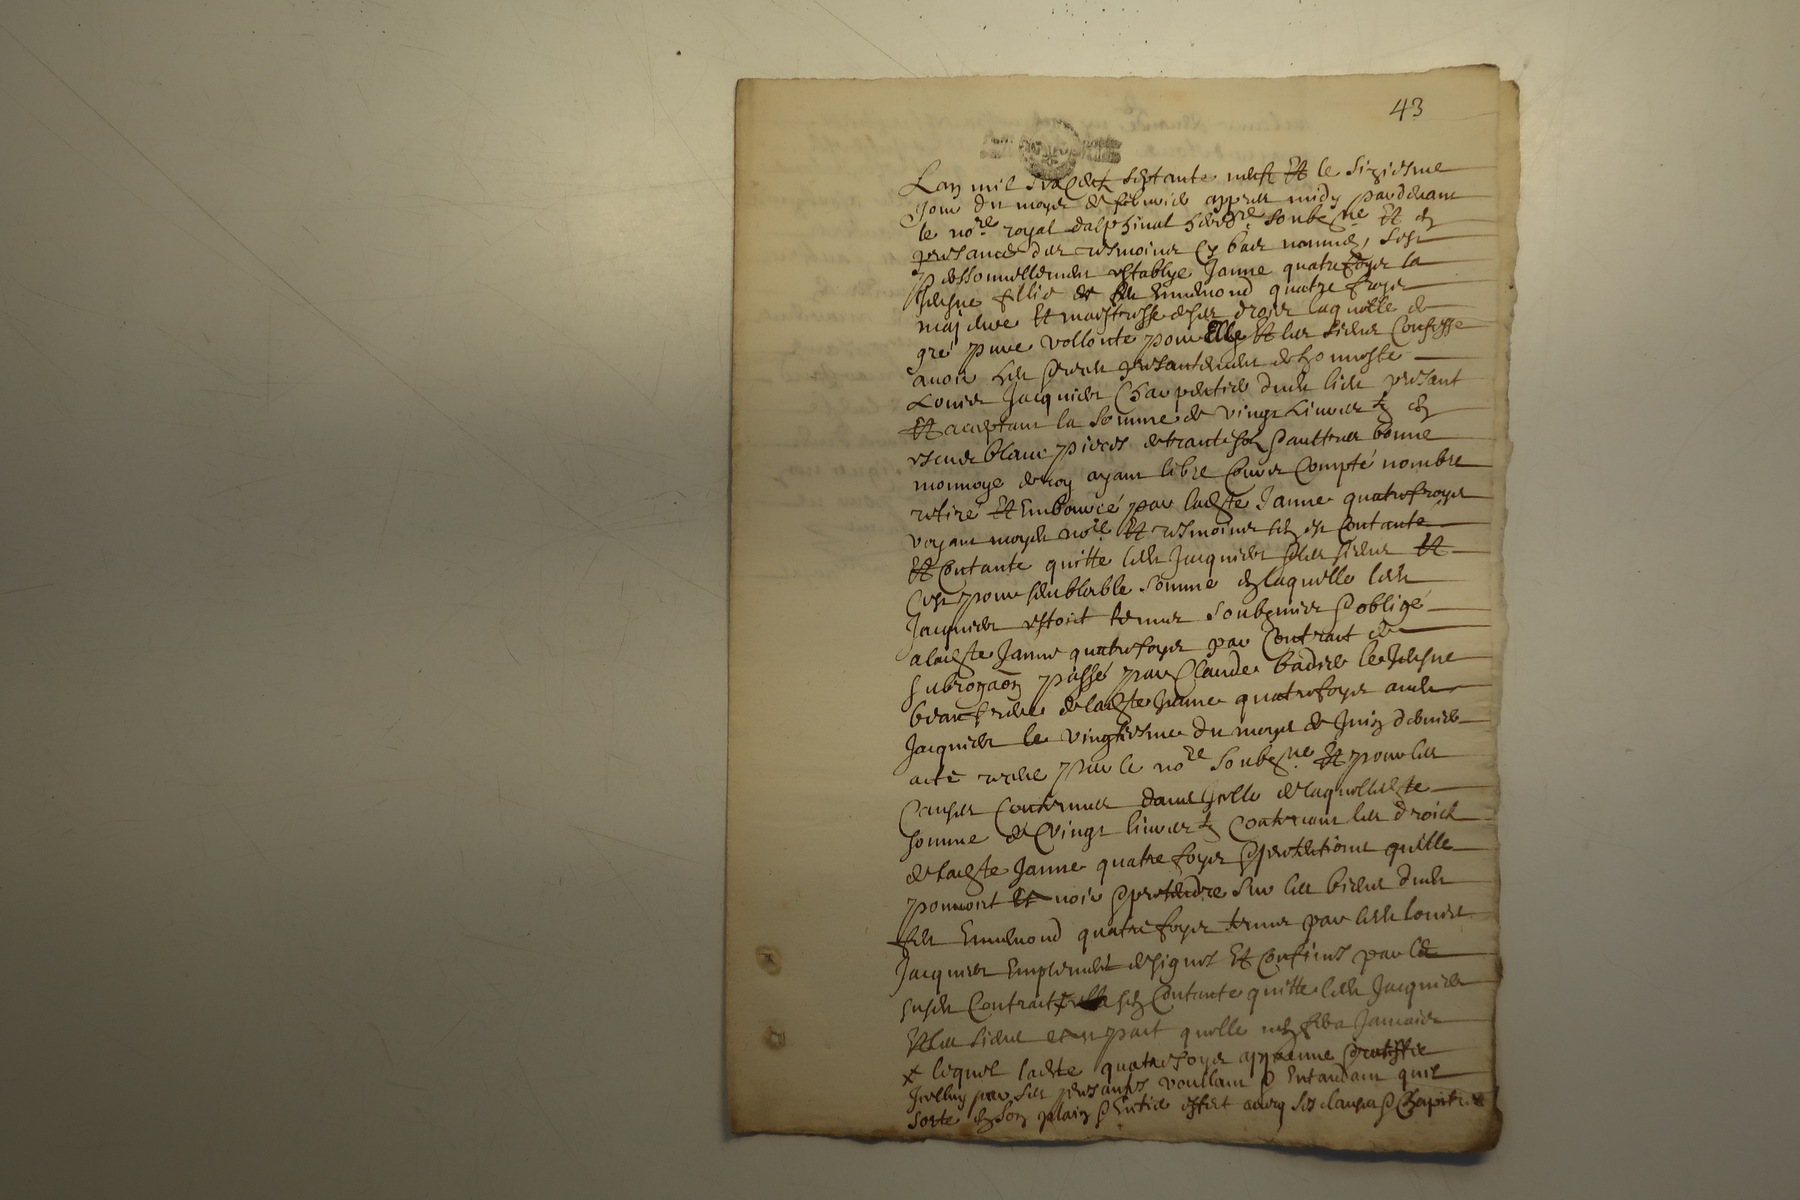 43
Lan mil six cent septante neuf Et le sixiesme
Jour du moys de febvrier appres midy pardevant
le no.re royal dalphinal heredre. soubzne. Et en
presance des tesmoins cy bas nommes, sest
personnellement establye Janne quatrefoyes la
Jeusne fillie de feu Ennemond quatre froyes
majeure Et maistresse de ses droits laquelle de
gré pure vollonte pour Elle Et les siens Confesse
avoir heu receu presantement de honneste
Louis Jacquier Charpentier dudt lieu presant
Et aceptant la somme de vingt Livres tz en
escus blanc pieces de trante solz & auttres bonne
monnoye de roy ayant libre Cours Compté nombre
retiré Et Embourcé par ladste Janne quatrefroyes
voyant moydt nore. Et tesmoins sen est Contanté
Et Contante quitte ledt Jacquier & les siens Et
Cest pour semblable somme en laquelle ledt
Jacquier estoit tenus soubzmis & obligé
a ladste Janne quatrefoyes par Contrait de
subrogaon passé par Claude badier le Jeusne
beau frere de ladste Janne quatrefoyes audt
Jacquier le vingtiesme du moys de Juin dernier
acte receu par le nore soubzne. Et pour les
Causes Contenues dans Icelle de laquelle dste
somme de vingt livres tz Conternant les droicts
de ladste Janne quatre foyes & pretentions quelle
pouvoit avoir & pretendre sur les biens dudt
feu Ennemond quatre foyes tenus par ledt louis
Jacquier Emplement designes Et Confines par le
susdt Contrait x sen Contante quitte ledt Jacquier
Et les siens & a part quelle nen fera Jamais
x lequel ladste quatrefoyes appreuve & ratiffie
Icelluy par ses presantes voullant & Entandant quil
sorte En son plain & Entier effect avec ses clauses & Chapitres